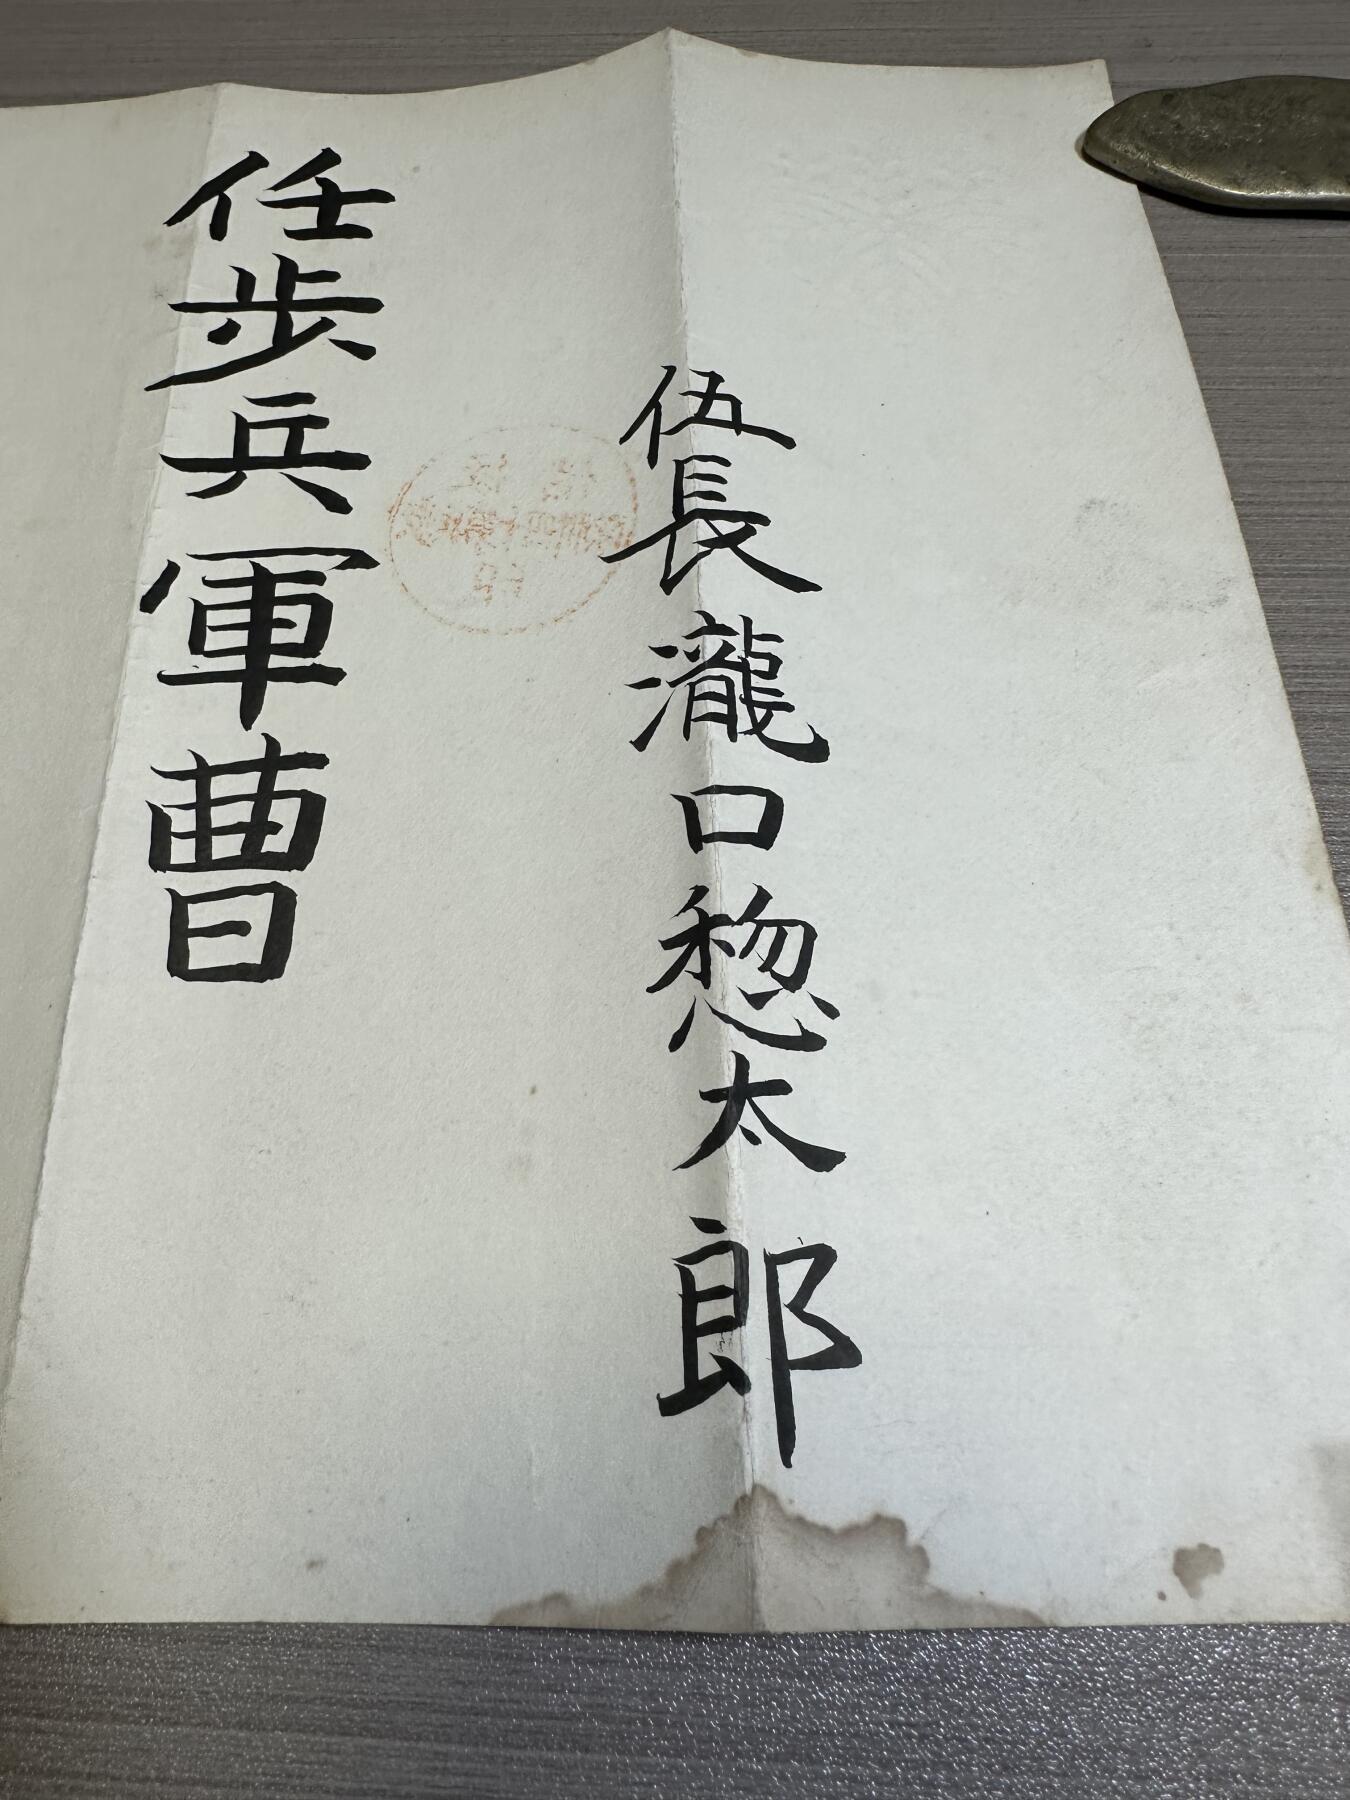 伍長瀧口惣太郎
任步兵軍曹